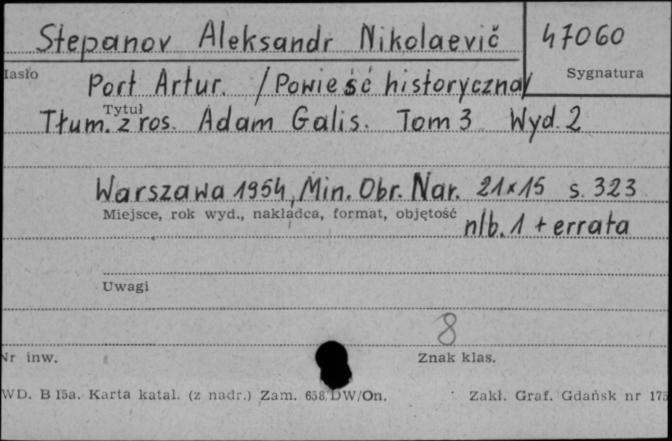 Stepanov Aleksandr Nikolaevič 47060
Hasło Sygnatura
Port Artur. /Powieść historyczna/
Tytuł
Tłum. z ros. Adam Galis. Tom 3 Wyd. 2
Warszawa 1954, Min. Obr. Nar. 21x15 s. 323
Miejsce, rok wyd., nakładca, format, objętość
nlb. 1 + errata
Uwagi
8
Nr inw. Znak klas.
WD. B 15a. Karta katal. (z nadr.) Zam. 658/DW/On. Zakł. Graf. Gdańsk nr 175